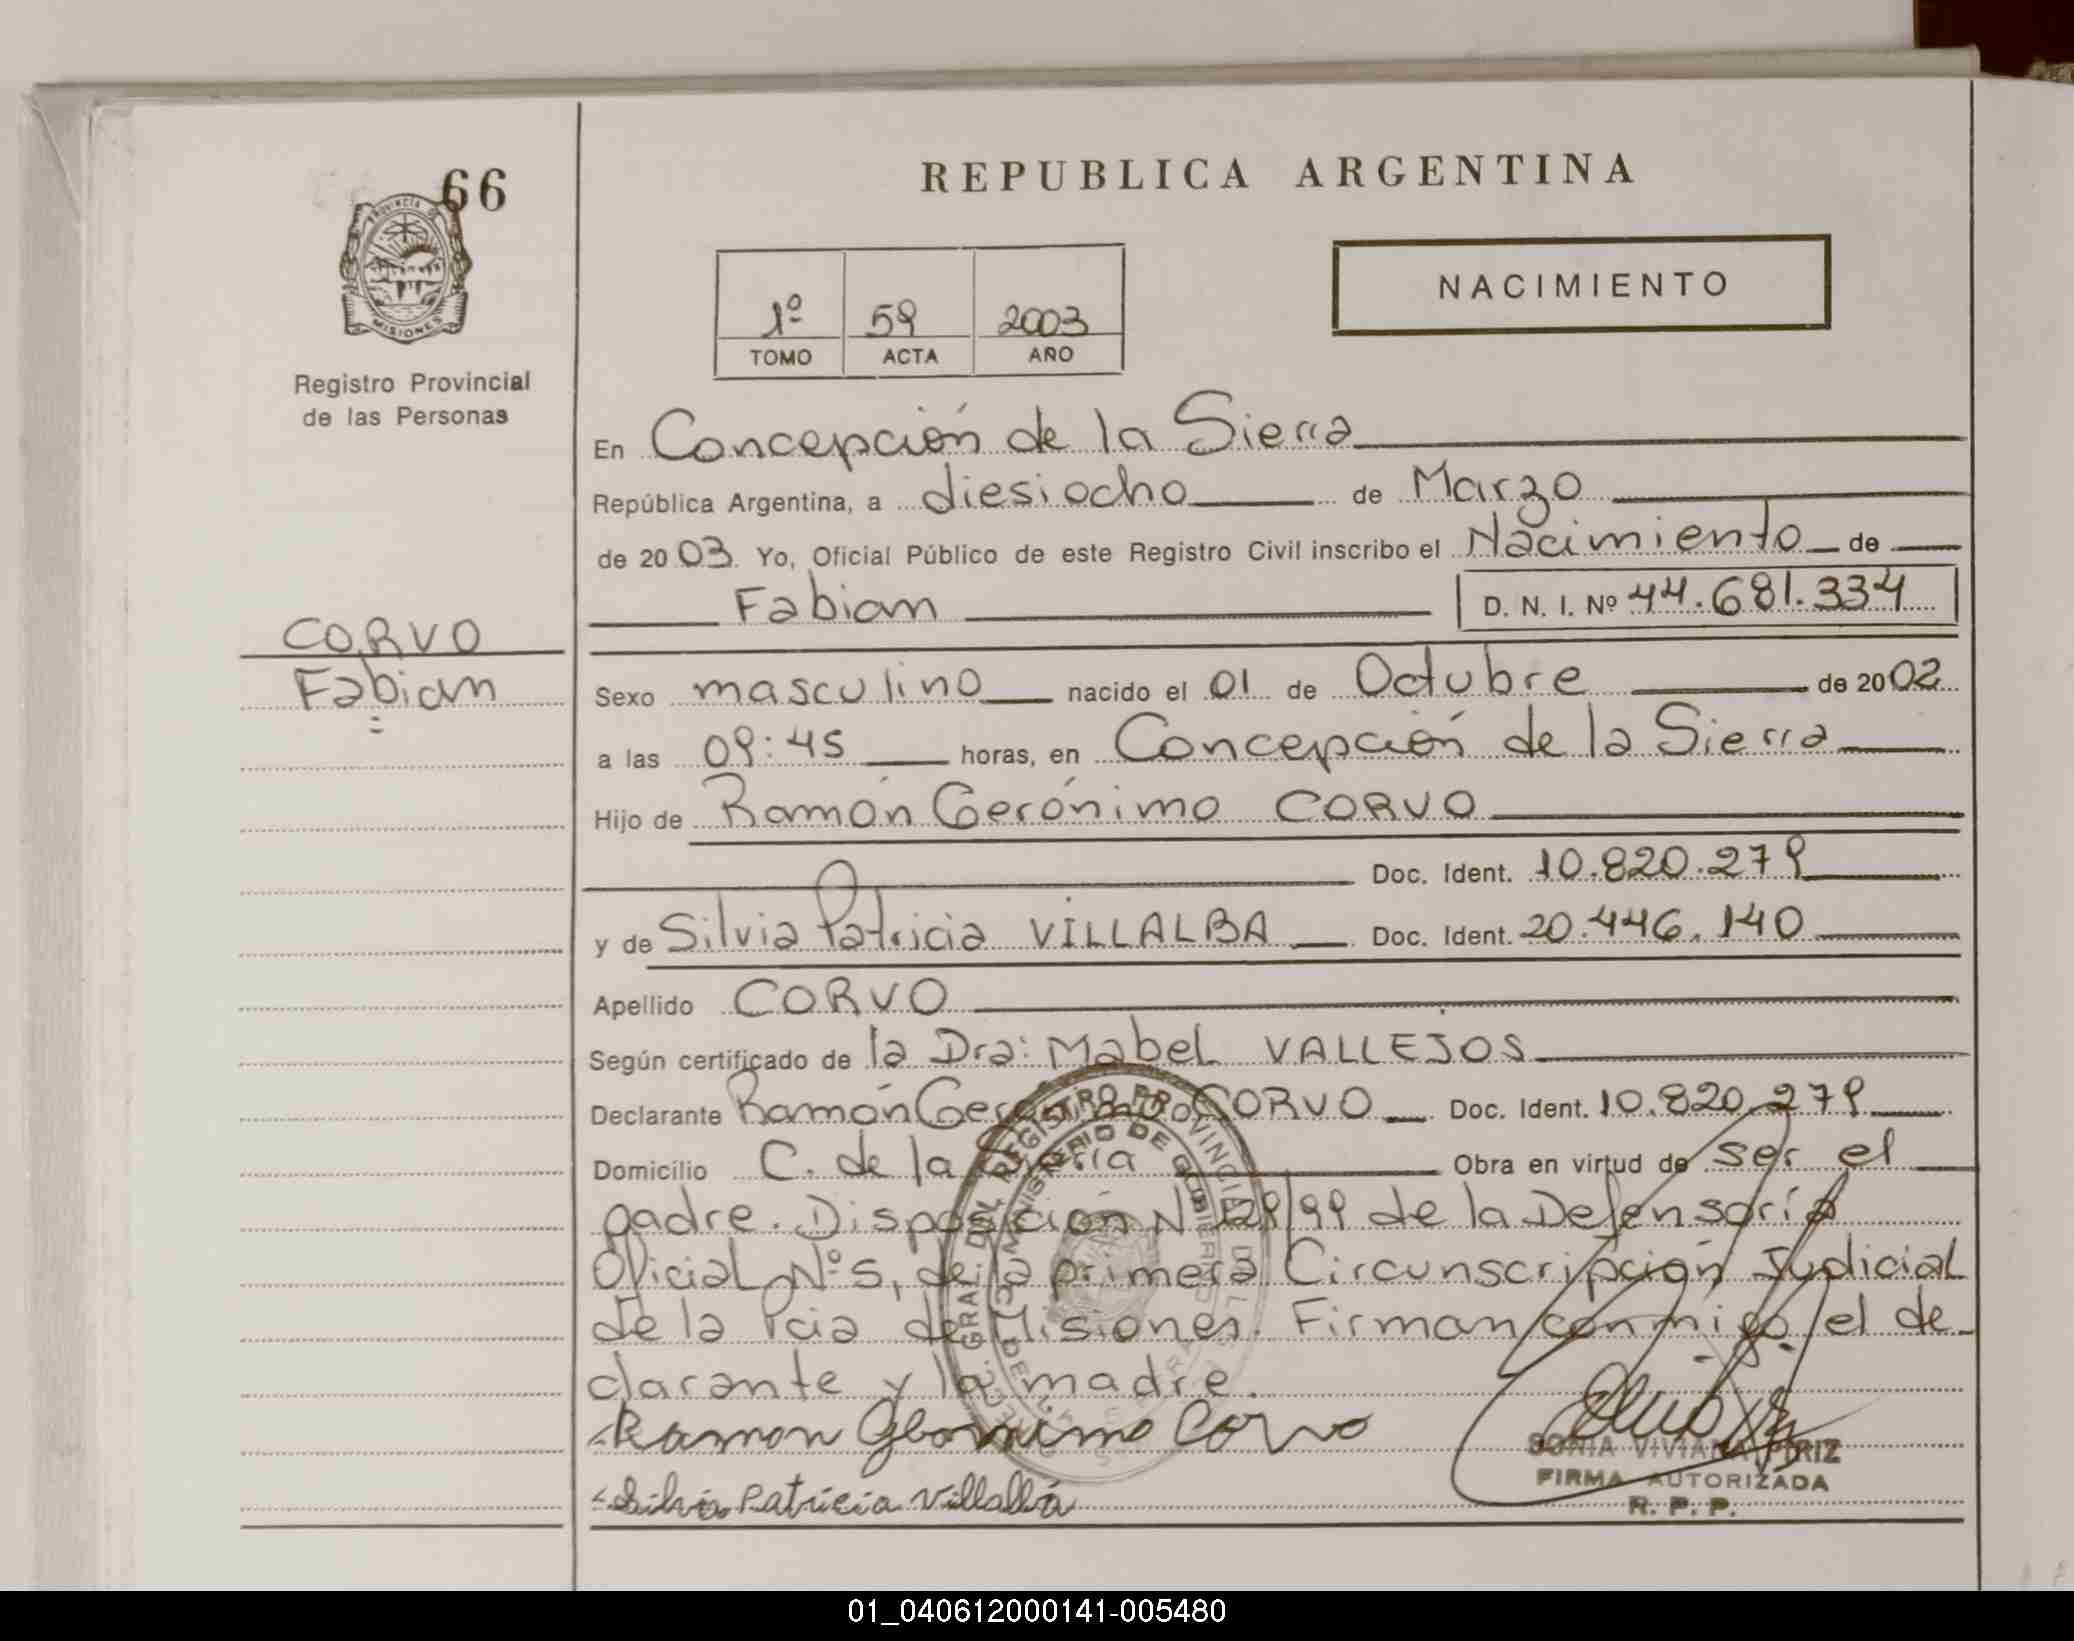 66
PROVINCIA DE
MISIONES
Registro Provincial
de las Personas
CORVO
Fabian
REPUBLICA ARGENTINA
1º 59 2003
TOMO ACTA AÑO
NACIMIENTO
En Concepción de la Sierra
República Argentina, a diesiocho de Marzo
de 2003. Yo, Oficial Público de este Registro Civil inscribo el Nacimiento de
Fabian D. N. I. Nº 44.681.334
Sexo masculino nacido el 01 de Octubre de 2002
a las 09:45 horas, en Concepción de la Sierra
Hijo de Ramón Gerónimo CORVO
Doc. Ident. 10.820.279
y de Silvia Patricia VILLALBA Doc. Ident. 20.446.140
Apellido CORVO
Según certificado de la Dra: Mabel VALLEJOS
Declarante Ramón Gerónimo CORVO Doc. Ident. 10.820.279
Domicilio C. de la Sierra Obra en virtud de ser el
padre. Disposición Nº 129/99 de la Defensoría
Oficial Nº 5, de la primera Circunscripción Judicial
de la Pcia de Misiones. Firman conmigo el de-
clarante y la madre.
Ramon Geronimo Corvo
Silvia Patricia Villalba
SONIA VIVIANA PIRIZ
FIRMA AUTORIZADA
R. P. P.
01_040612000141-005480